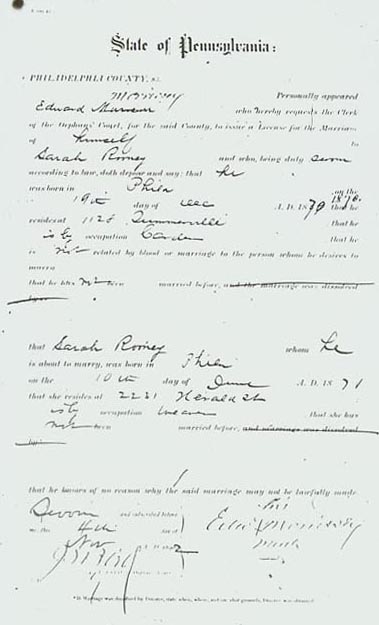 State of Pennsylvania:
PHILADELPHIA COUNTY, ss.
Personally appeared
Edward who hereby requests the Clerk
of the Orphans' Court, for the said County, to issue a License for the Marriage
of himself to
Sarah Rooney and who, being duly sworn
according to law, doth depose and say: that he
was born in Phila on the
19th day of Dec A. D. 1870 that he
resides at 1128 that he
is by occupation that he
is not related by blood or marriage to the person whom he desires to
marry
that he has not been married before, and the marriage was dissolved
that Sarah Rooney whom he
is about to marry, was born in Phila
on the 10th day of June A. D. 1871
that she resides at 2231 St
is by occupation Weaver that she has
not been married before, and marriage was dissolved
by:
that he knows of no reason why the said marriage may not be lawfully made
Sworn and subscribed before
me the 4th day of
Nov
his
Edw X Morrissey
mark